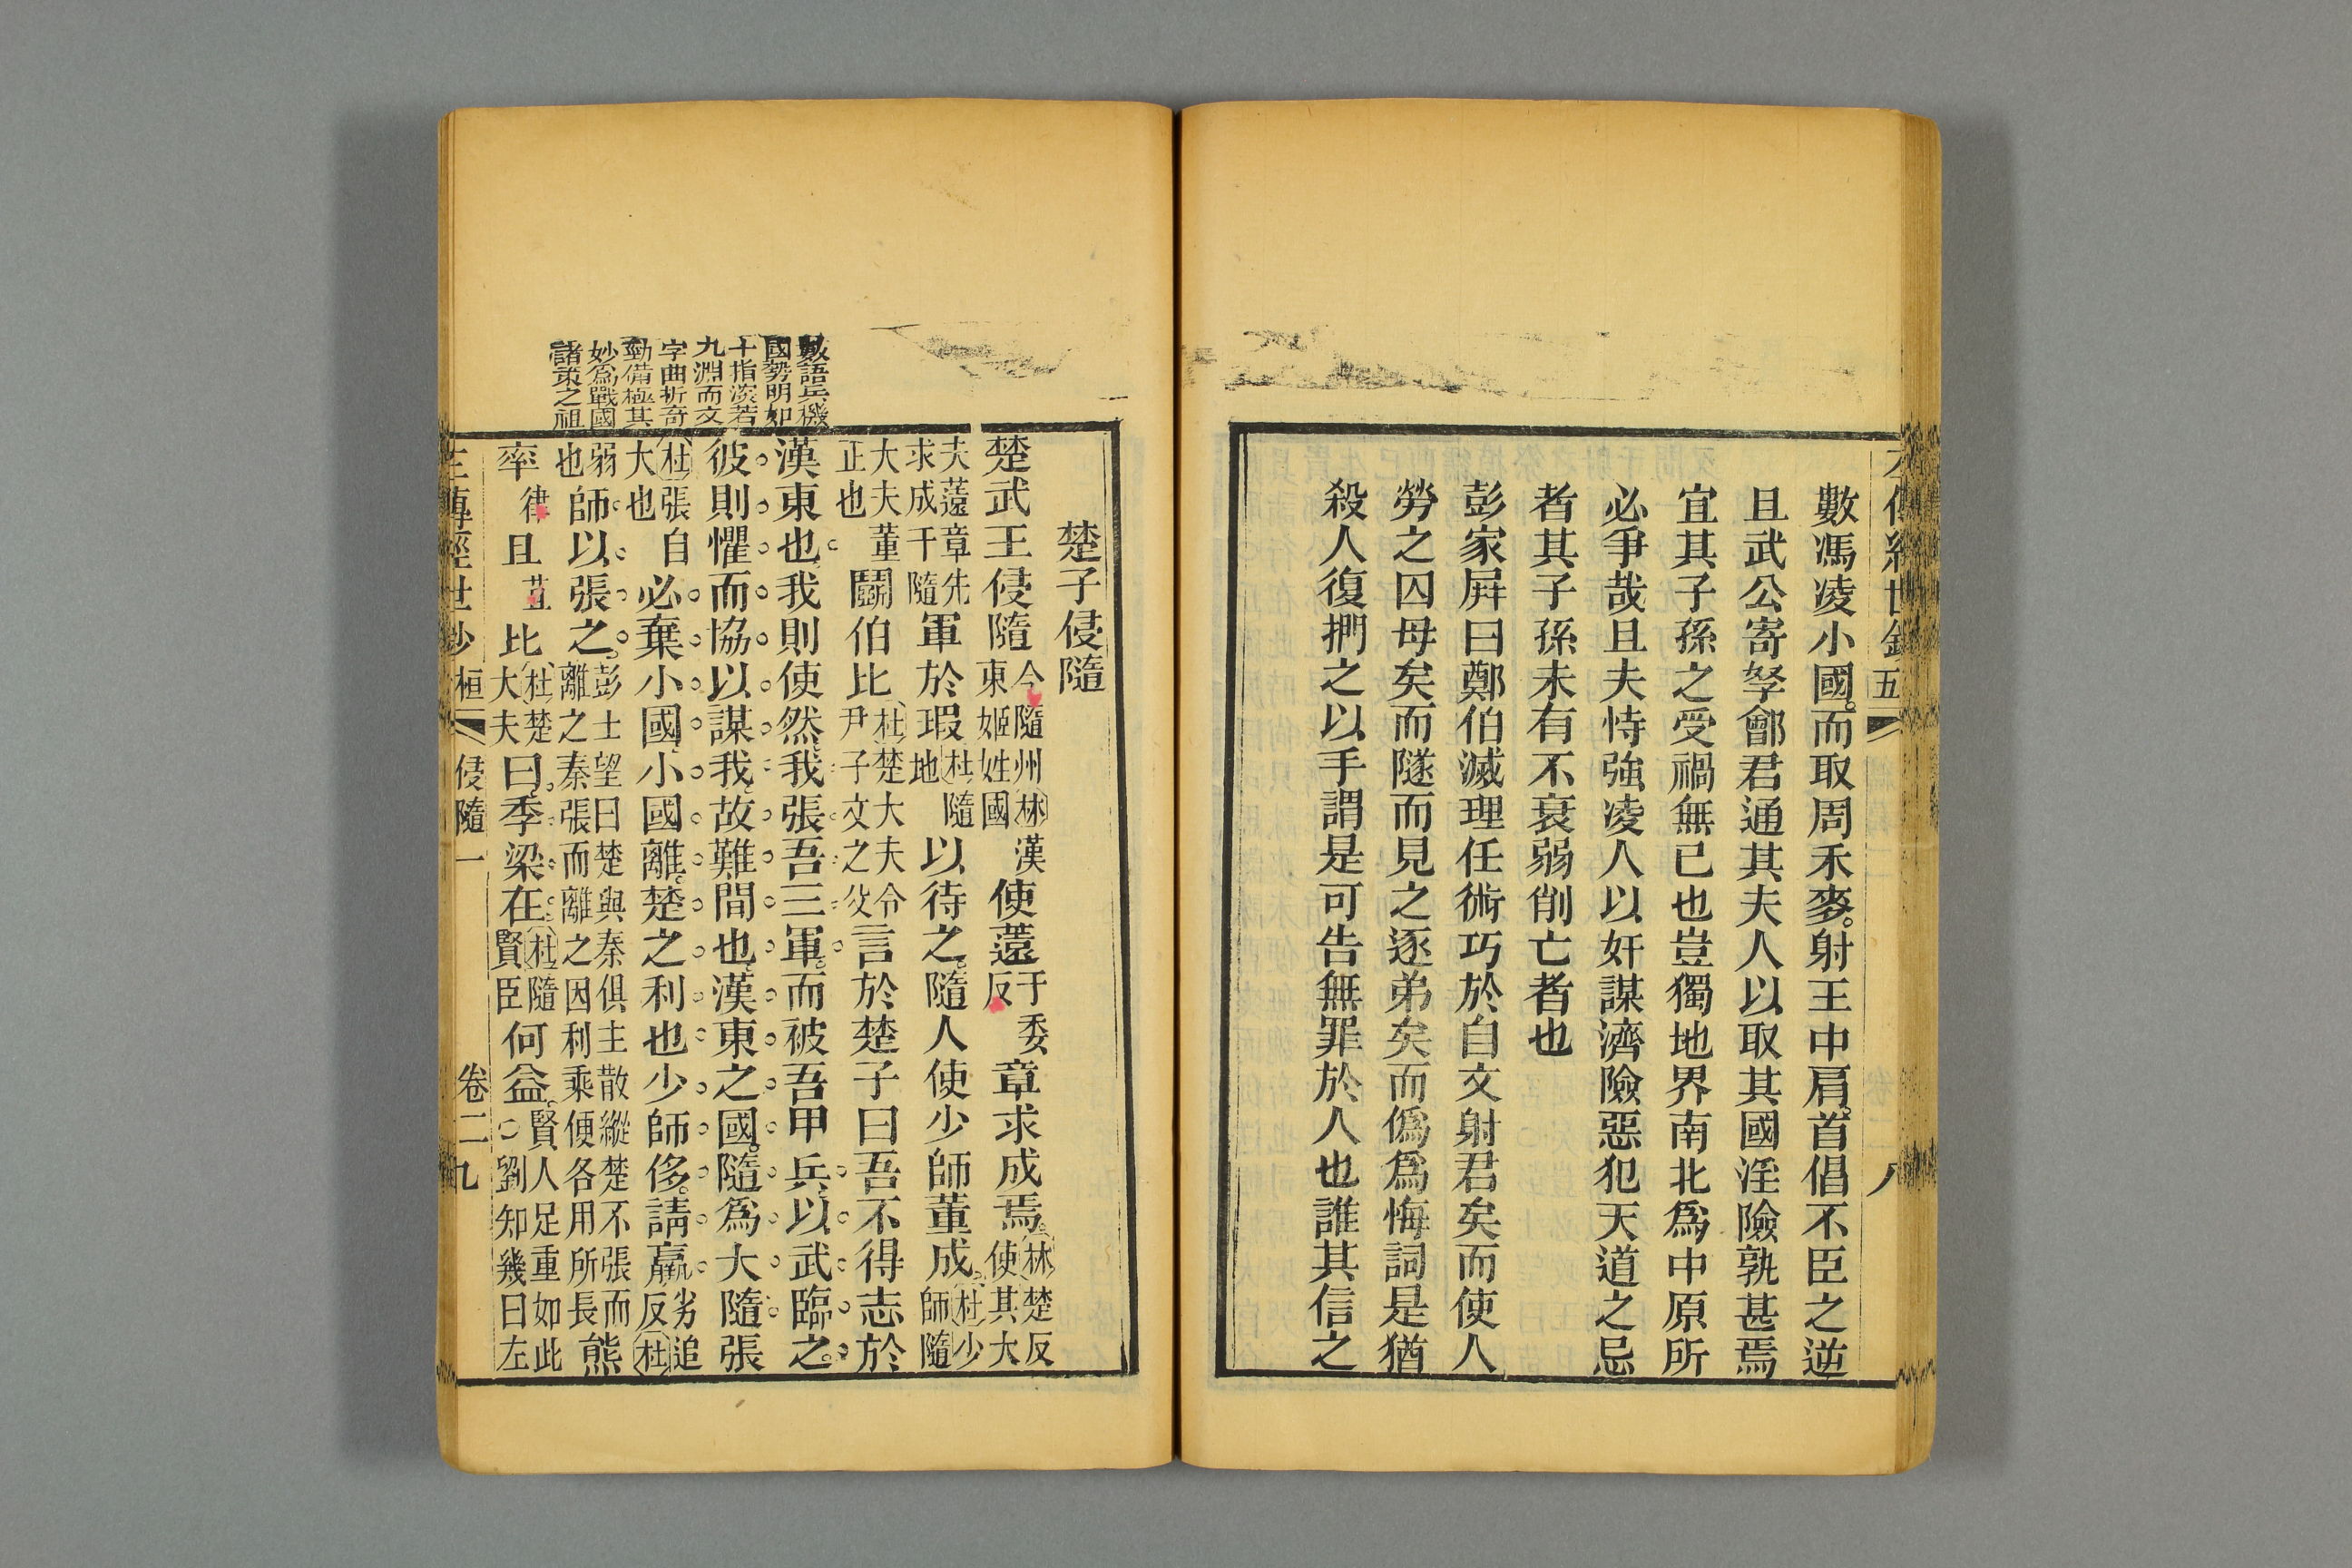 數馮凌小國而取周禾麥射王中肩首倡不臣之逆
且武公寄孥鄶君通其夫人以取其國淫險孰甚焉
宜其子孫之受禍無已也豈獨地界南北爲中原所
必爭哉且夫恃強凌人以奸謀濟險惡犯天道之忌
者其子孫未有不衰弱削亡者也
彭家屏曰鄭伯滅理任術巧於自文射君矣而使人
勞之囚母矣而隧而見之逐弟矣而僞爲悔詞是猶
殺人復捫之以手謂是可告無罪於人也誰其信之
五
八
楚子侵隨
楚武王侵隨
今隨州林漢
東姬姓國
使薳
于委
反
章求成焉
林楚反
使其大
夫薳章先
求成于隨
軍於瑕
杜隨
地
以待之隨人使少師董成
杜少
師隨
大夫董
正也
鬭伯比
杜楚大夫令
尹子文之父
言於楚子曰吾不得志於
漢東也我則使然我張吾三軍而被吾甲兵以武臨之
彼則懼而協以謀我故難間也漢東之國隨爲大隨張
杜張自
大也
必棄小國小國離楚之利也少師侈請羸
劣追
反杜
弱
也
師以張之
彭士望曰楚與秦俱主散縱楚不張而
離之秦張而離之因利乘便各用所長
熊
率
律
且
苴
比
杜楚
大夫
曰季梁在
杜隨
賢臣
何益
賢人足重如此
○劉知幾曰左
數語兵機
國勢明如
十指深若
九淵而文
字曲折奇
勁備極其
妙爲戰國
諸策之祖
左傳經世鈔
桓
侵隨一
卷二
九